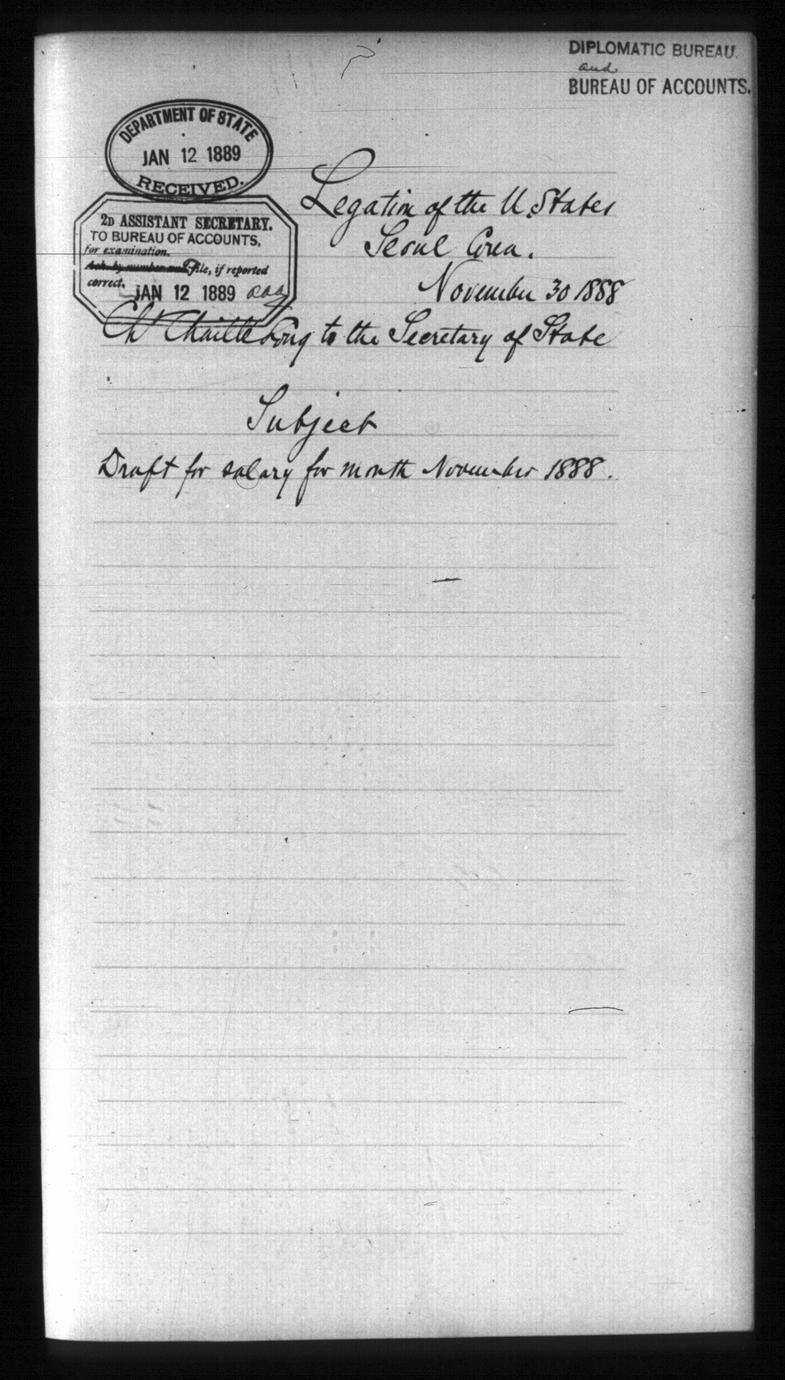 DIPLOMATIC BUREAU.
and
BUREAU OF ACCOUNTS.
DEPARTMENT OF STATE
JAN 12 1889
RECEIVED.
2D ASSISTANT SECRETARY.
TO BUREAU OF ACCOUNTS,
for examination.
Ack. by number and file, if reported
correct.
JAN 12 1889
Legation of the U. States
Seoul Corea.
November 30 1888
Ch Chaillé Long to the Secretary of State
Subject
Draft for salary for month November 1888.